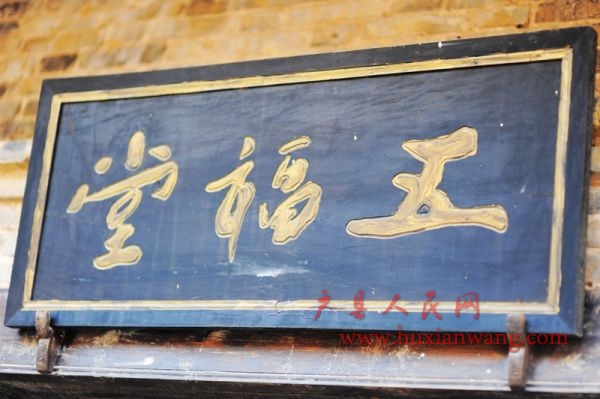 五福堂
户县人民网
www.huxianwang.com